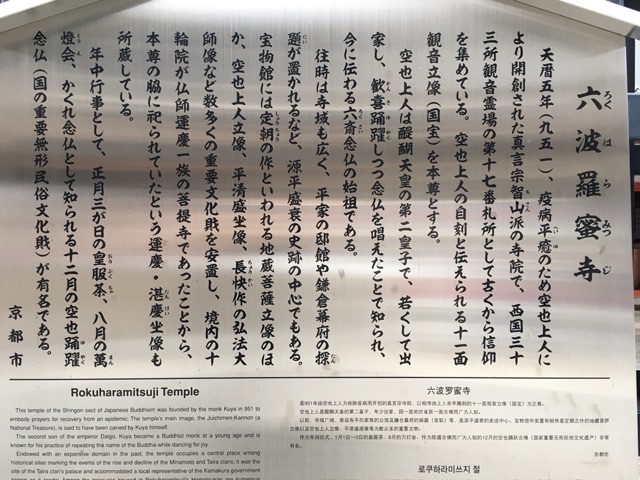 六波羅蜜寺
天暦五年（九五一）、疫病平癒のため空也上人に
より開創された真言宗智山派の寺院で、西国三十
三所観音霊場の第十七番札所として古くから信仰
を集めている。空也上人の自刻と伝えられる十一面
観音立像（国宝）を本尊とする。
空也上人は醍醐天皇の第二皇子で、若くして出
家し、歓喜踊躍しつつ念仏を唱えたことで知られ、
今に伝わる六斎念仏の始祖である。
往時は寺域も広く、平家の邸館や鎌倉幕府の探
題が置かれるなど、源平盛衰の史跡の中心でもある。
宝物館には定朝の作といわれる地蔵菩薩立像のほ
か、空也上人立像、平清盛坐像、長快作の弘法大
師像など数多くの重要文化財を安置し、境内の十
輪院が仏師運慶一族の菩提寺であったことから、
本尊の脇に祀られていたという運慶・湛慶坐像も
所蔵している。
年中行事として、正月三が日の皇服茶、八月の萬
燈会、かくれ念仏として知られる十二月の空也踊躍
念仏（国の重要無形民俗文化財）が有名である。
京都市
Rokuharamitsuji Temple
This temple of the Shingon sect of Japanese Buddhism was founded by the monk Kuya in 951 to
embody prayers for recovery from an epidemic. The temple's main image, the Juichimen Kannon (a
National Treasure), is said to have been carved by Kuya himself.
The second son of the emperor Daigo, Kuya became a Buddhist monk at a young age and is
known for his practice of repeating the name of the Buddha while dancing for joy.
Endowed with an expansive domain in the past, the temple occupies a central place among
historical sites marking the events of the rise and decline of the Minamoto and Taira clans; it was the
site of the Taira clan's palace and accommodated a local representative of the Kamakura government
六波罗蜜寺
京都市
로쿠하라미쓰지 절